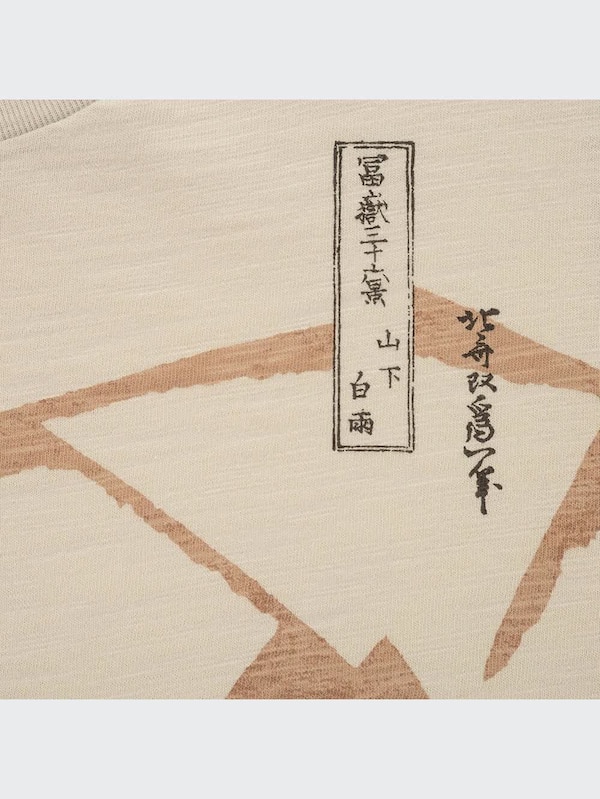 冨嶽三十六景
山下
白雨
北斎改為一筆